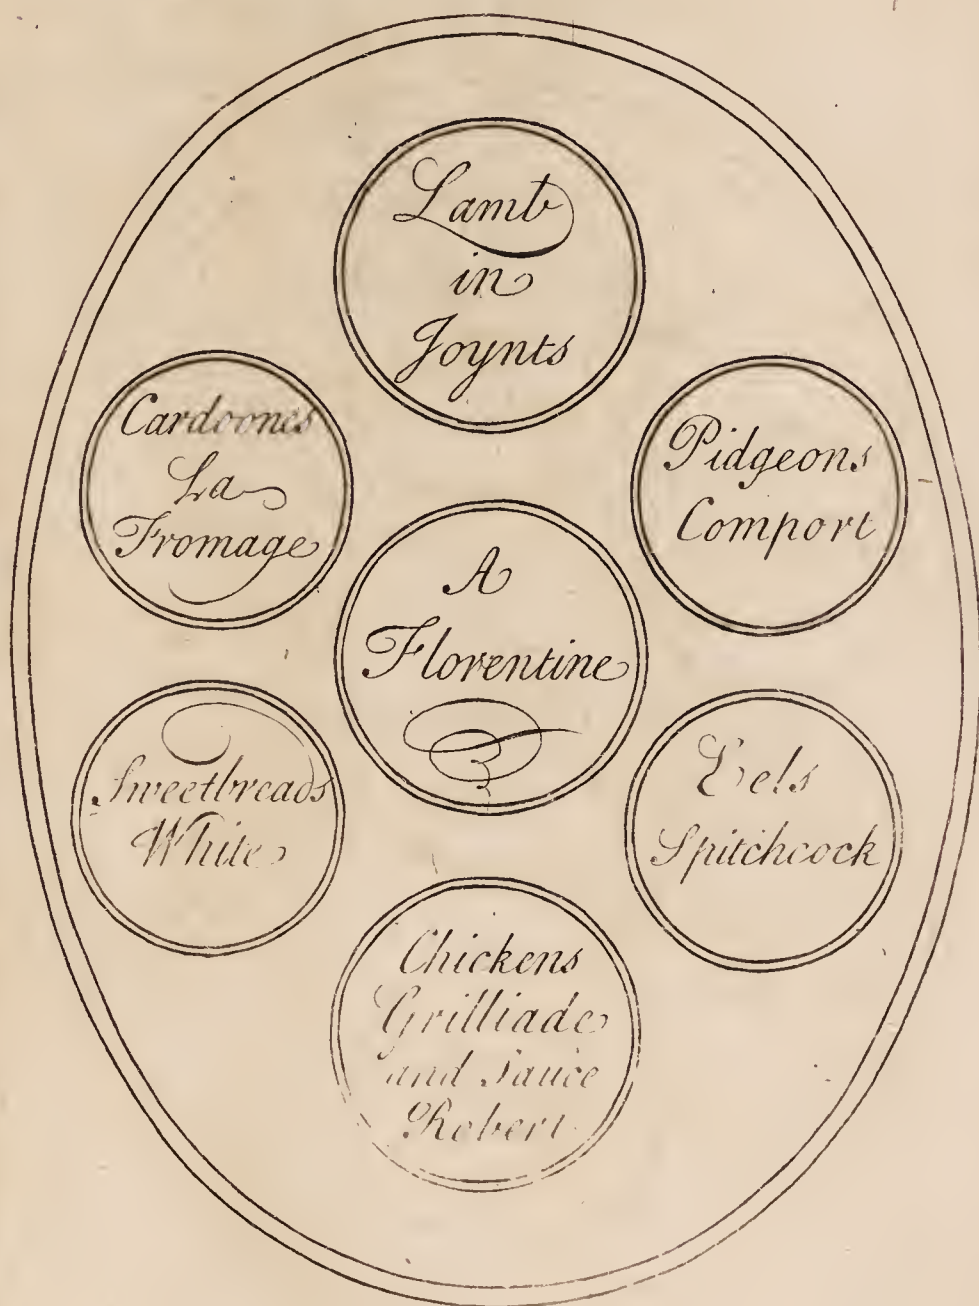 Lamb
in
Joynts
Cardoones
La
Fromage
Pidgeons
Comport
A
Florentine
Sweetbreads
White
Eels
Spitchcock
Chickens
Grilliade
and Sauce
Robert